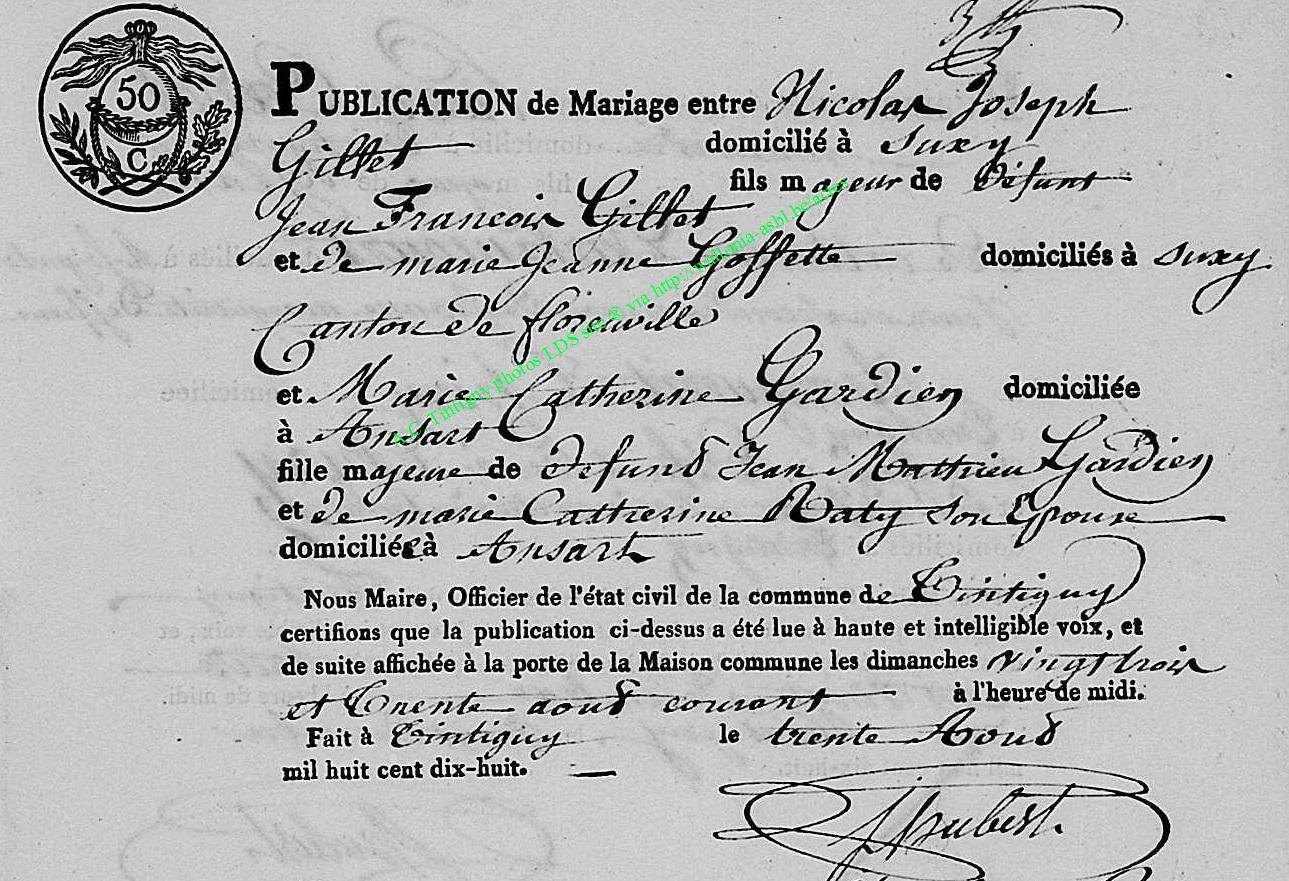 50
C
PUBLICATION de Mariage entre Nicolas Joseph
Gillet domicilié à Suxy
fils majeur de Défunt
Jean Francois Gillet
et de marie Jeanne Goffette domiciliés à Suxy
Canton de florenville
et Marie Catherine Gardien domiciliée
à Ansart
fille majeure de défund Jean Mathieu Gardien
et de marie Catherine Raty son Epouse
domiciliée à Ansart
Nous Maire, Officier de l'état civil de la commune de Tintigny
certifions que la publication ci-dessus a été lue à haute et intelligible voix, et
de suite affichée à la porte de la Maison commune les dimanches vingt trois
et Trente aoud courant à l'heure de midi.
Fait à Tintigny le trente Aoud
mil huit cent dix-huit.
hubert
A.C. Tintigny photos LDS via http://wallonia-asbl.be/actes